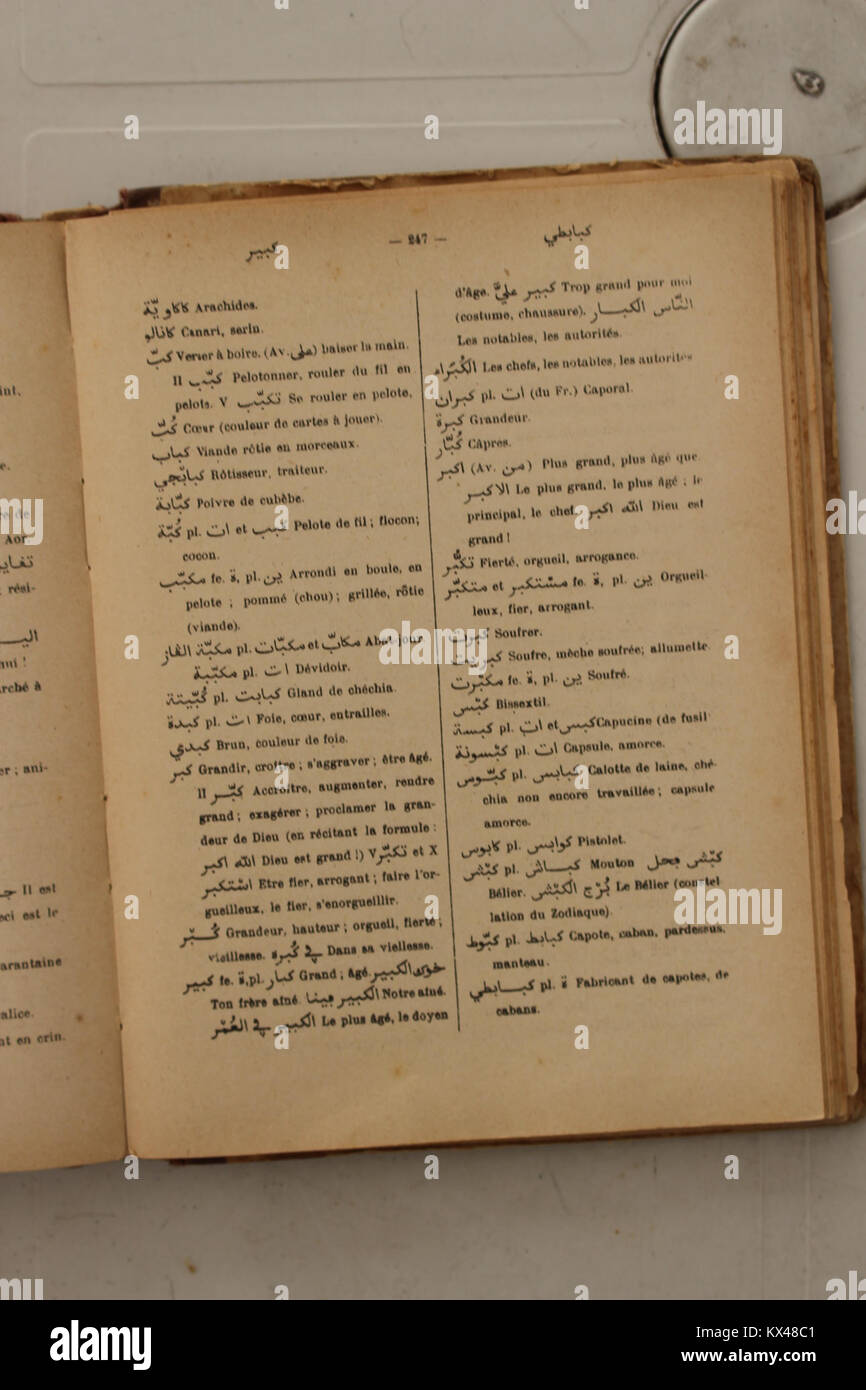 كبير
— 247 —
كبابطي
كاكاويّة Arachides.
كانالو Canari, serin.
كبّ Verser à boire. (Av. على) baiser la main.
II كبّب Pelotonner, rouler du fil en
pelote. V تكبّب Se rouler en pelote,
كُبّ Cœur (couleur de cartes à jouer).
كباب Viande rôtie en morceaux.
كبابجي Rôtisseur, traiteur.
كبّابة Poivre de cubèbe.
كُبّة pl. ات et كبب Pelote de fil ; flocon;
cocon.
مكبّب fe. ة, pl. ين Arrondi en boule, en
pelote ; pommé (chou) ; grillée, rôtie
(viande).
مكبّة الڤاز pl. مكبّات et مكابّ Abat-jour
مكبّبة pl. ات Dévidoir.
كُبّيتة pl. كبابت Gland de chéchia.
كبدة pl. ات Foie, cœur, entrailles.
كبدي Brun, couleur de foie.
كبر Grandir, croître ; s'aggraver ; être âgé.
II كبّر Accroître, augmenter, rendre
grand ; exagérer ; proclamer la gran-
deur de Dieu (en récitant la formule :
الله اكبر Dieu est grand !) V تكبّر et X
استكبر Etre fier, arrogant ; faire l'or-
gueilleux, le fier, s'enorgueillir.
كُبر Grandeur, hauteur ; orgueil, fierté ;
vieillesse. في كُبره Dans sa viellesse.
كبير fe. ة, pl. كبار Grand ; âgé خوك الكبير
Ton frère aîné الكبير فينا Notre aîné.
الكبير في العُمُر Le plus âgé, le doyen
d'âge. كبير عليَّ Trop grand pour moi
(costume, chaussure). النّاس الكبار
Les notables, les autorités.
الكُبَراء Les chefs, les notables, les autorités
كبران pl. ات (du Fr.) Caporal.
كبرة Grandeur.
كُبّار Câpres.
اكبر (Av. من) Plus grand, plus âgé que
الاكبر Le plus grand, le plus âgé ; le
principal, le chef. الله اكبر Dieu est
grand !
تكبُّر Fierté, orgueil, arrogance.
متكبّر et مستكبر fe. ة, pl. ين Orgueil-
leux, fier, arrogant.
كبرت Soufrer.
كبريت Soufre, mèche soufrée; allumette.
مكبرت fe. ة, pl. ين Soufré.
كبس Bissextil.
كبسة pl. ات et كبس Capucine (de fusil
كبسونة pl. ات Capsule, amorce.
كبّوس pl. كبابس Calotte de laine, ché-
chia non encore travaillée ; capsule
amorce.
كابوس pl. كوابس Pistolet.
كبش pl. كباش Mouton كبش فحل
Bélier. بُرج الكبش Le Bélier (constel
lation du Zodiaque).
كبّوط pl. كبابط Capote, caban, pardessus,
manteau.
كبابطي pl. ة Fabricant de capotes, de
cabans.
int,
e.
Aor
تغاير
rési-
اليـ
nui !
rché à
er ; ani-
Il est
eci est le
arantaine
alice.
nt en crin.
alamy
Image ID: KX48C1
www.alamy.com